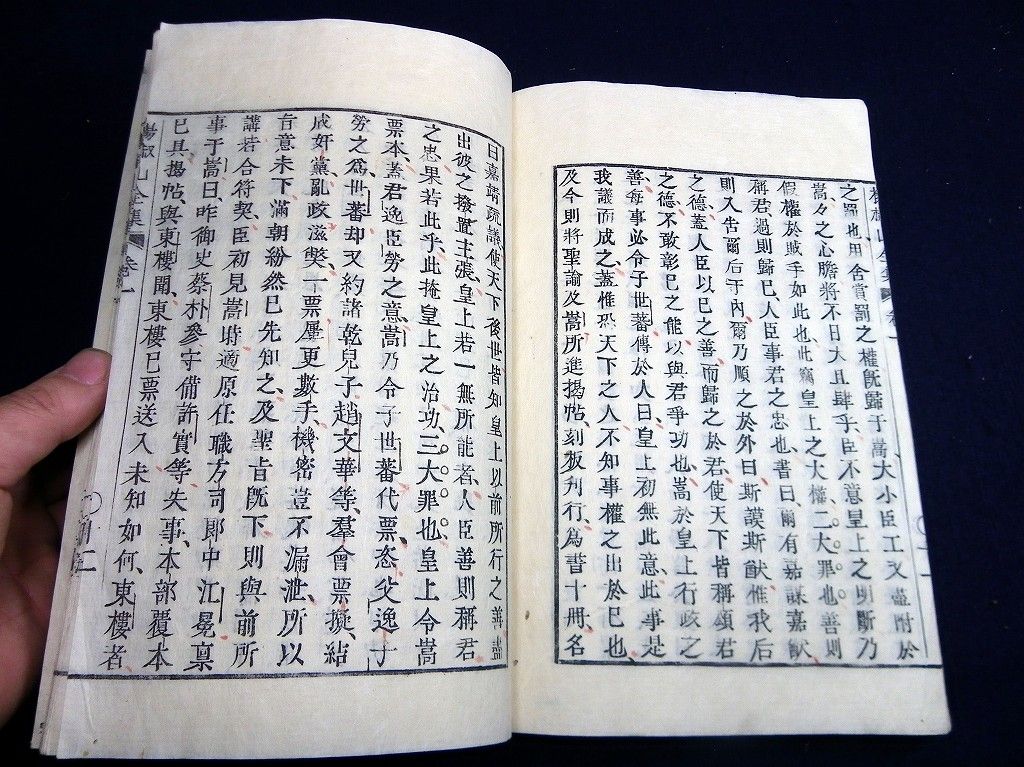 之罰也用舍賞罰之權既歸于嵩大小臣工又盡附於
嵩々之心膽將不日大且肆乎臣不意皇上之明斷乃
假權於賊手如此也此竊皇上之大權二大罪也善則
稱君過則歸已人臣事君之忠也書曰爾有嘉謀嘉猷
則入告爾后于內爾乃順之於外曰斯謨斯猷惟我后
之德蓋人臣以已之善而歸之於君使天下皆稱頌君
之德不敢彰已之能以與君爭功也嵩於皇上行政之
善每事必令子世蕃傳於人曰皇上初無此意此事是
我議而成之蓋惟恐天下之人不知事權之出於已也
及今則將聖諭及嵩所進揭帖刻板刊行為書十冊名
曰嘉靖疏議使天下後世皆知皇上以前所行之善盡
出彼之撥置主張皇上若一無所能者人臣善則稱君
之忠果若此乎此掩皇上之治功三大罪也皇上令嵩
票本蓋君逸臣勞之意嵩乃令子世蕃代票恣父逸子
勞之為世蕃却又約諸乾兒子趙文華等羣會票擬結
成奸黨亂政滋獘一票屢更數手機密豈不漏泄所以
旨意未下滿朝紛然已先知之及聖旨既下則與前所
講若合符契臣初見嵩時適原任職方司郎中江冕稟
事于嵩曰昨御史蔡朴參守備許實等失事本部覆本
已具揭帖與東樓聞東樓已票送入未知如何東樓者
山全集 卷一